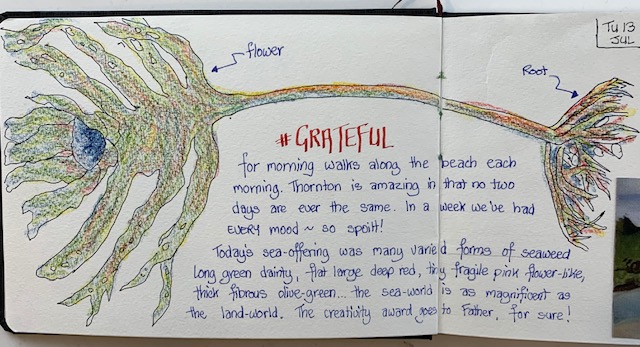 TU 13
JUL
flower
Root
#GRATEFUL
for morning walks along the beach each
morning. Thornton is amazing in that no two
days are ever the same. In a week we've had
EVERY mood ~ so spoilt!
Today's sea-offering was many varied forms of seaweed
Long green dainty, flat large deep red, tiny fragile pink flower-like,
thick fibrous olive-green... the sea-world is as magnificent as
the land-world. The creativity award goes to Father, for sure!